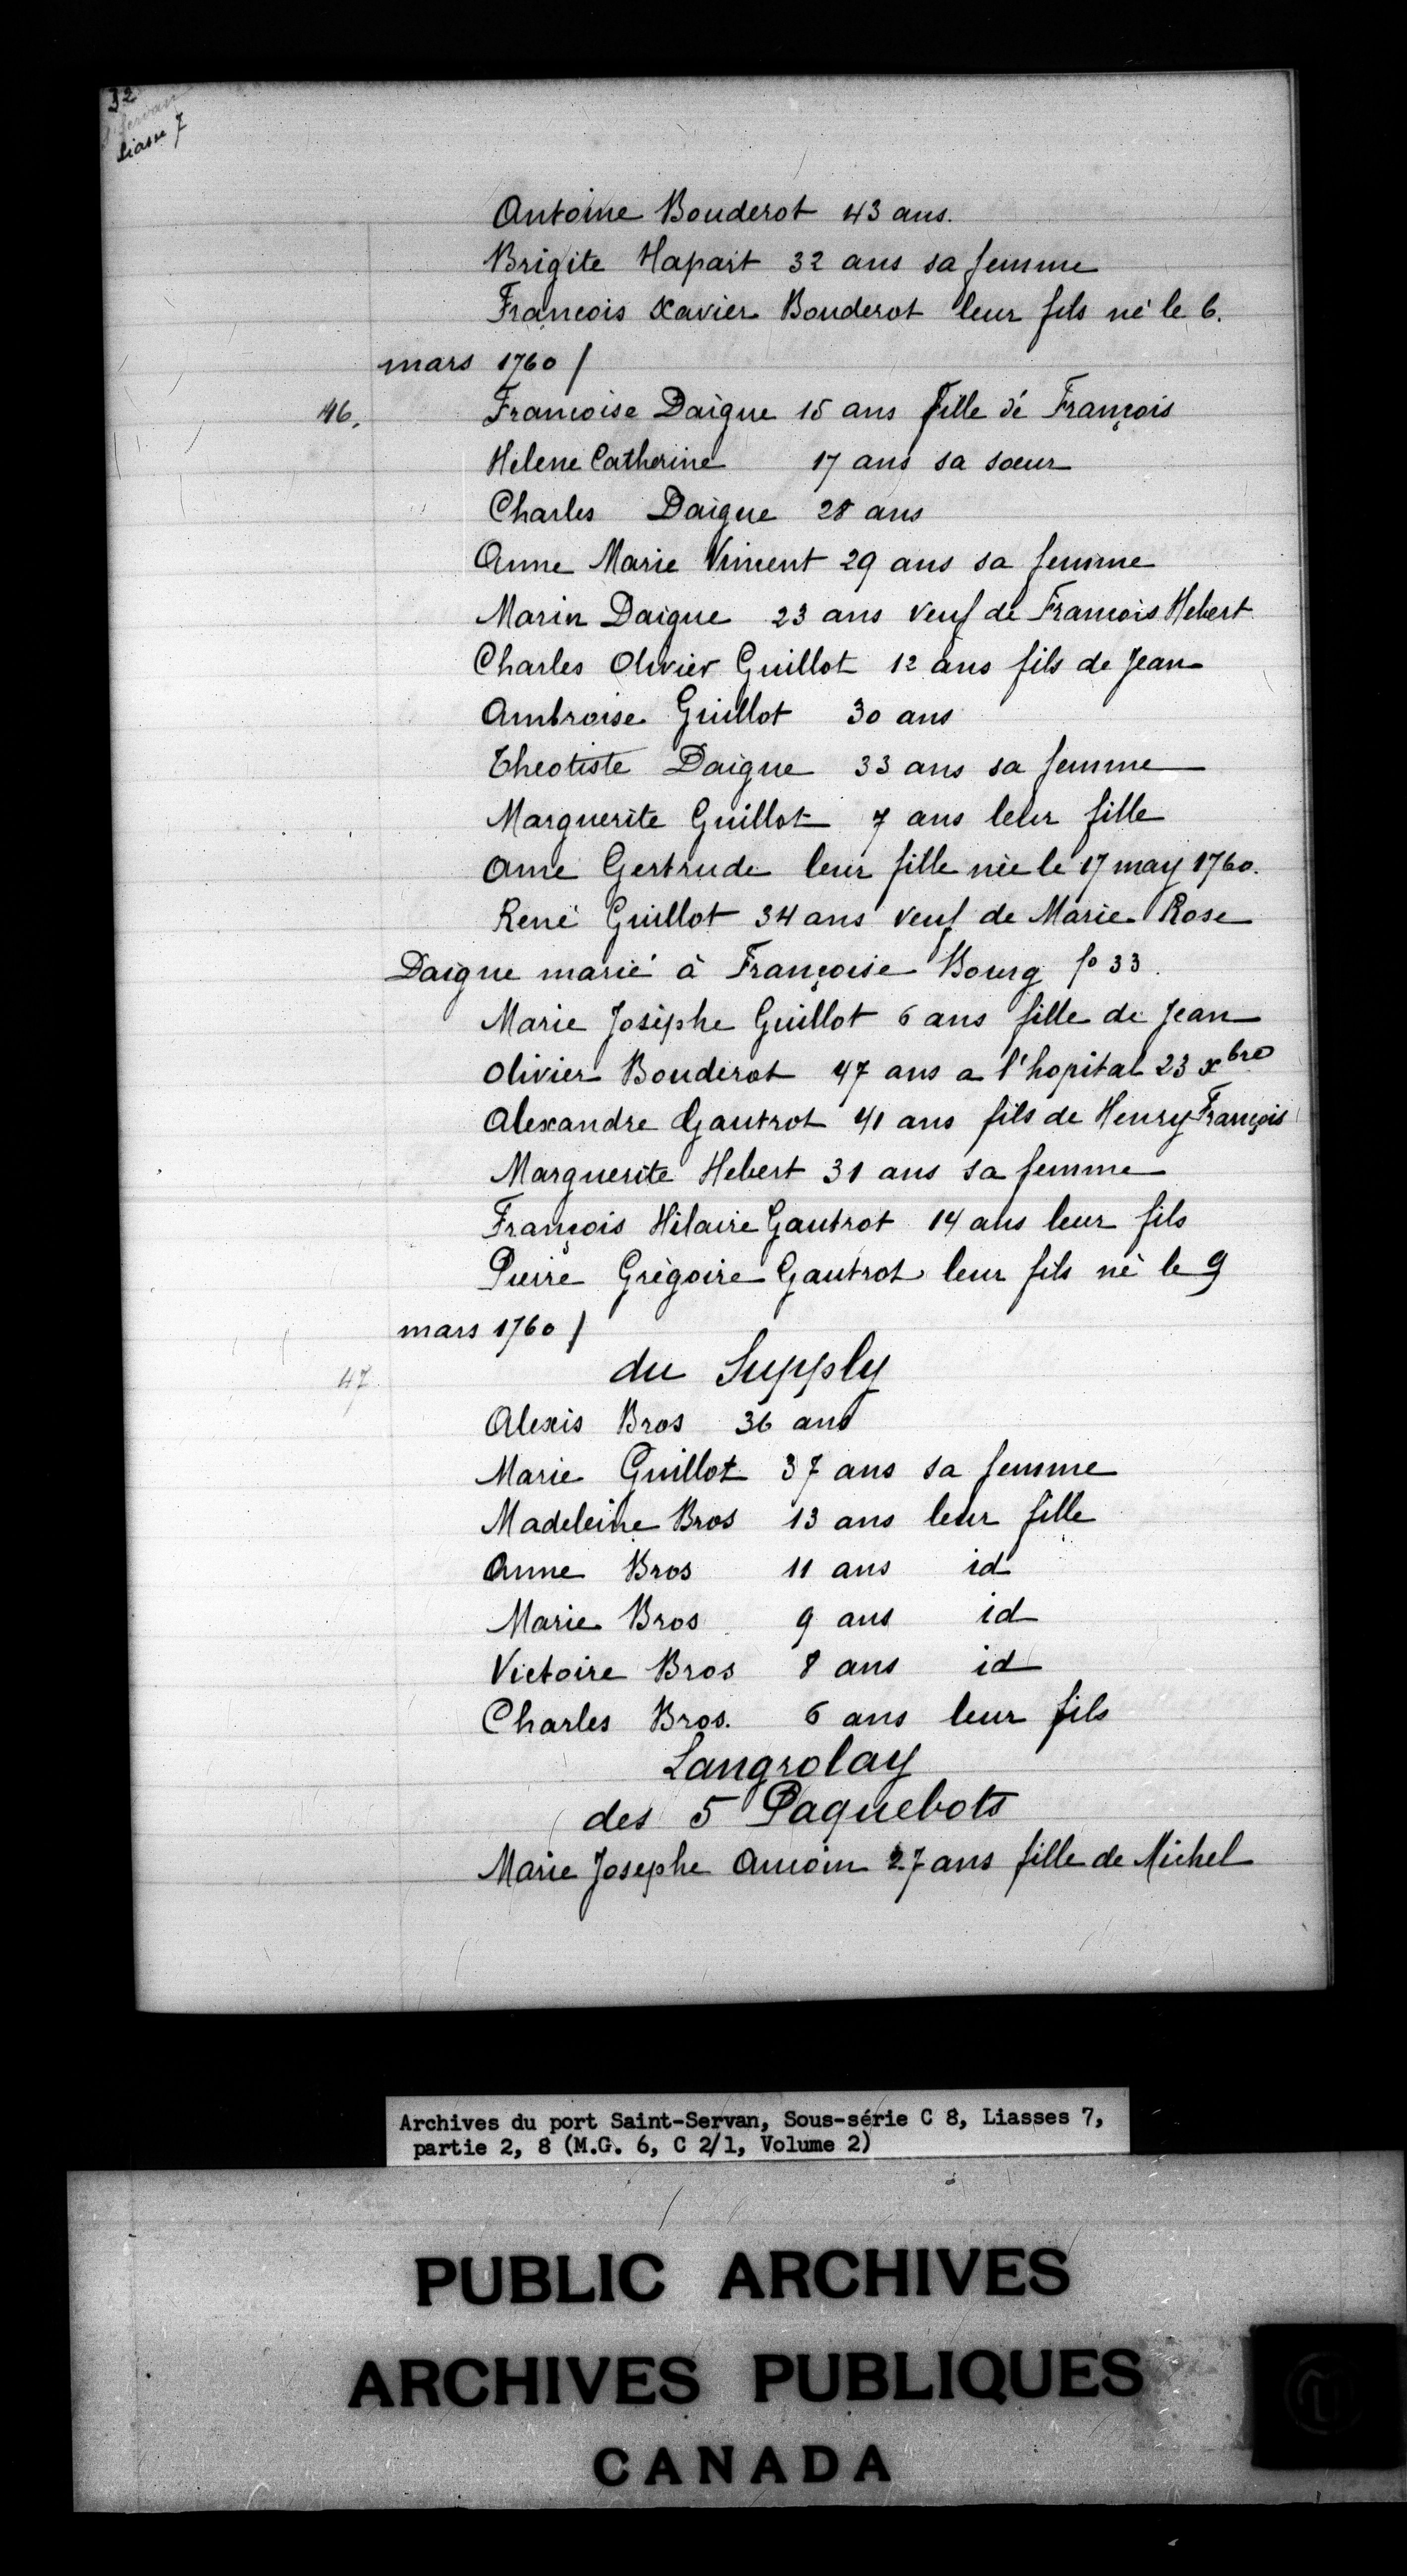 32
St Servan
Liasse 7
Antoine Bouderot 43 ans.
Brigite Hapart 32 ans sa femme
Francois Xavier Bouderot leur fils né le 6.
mars 1760 /
46. Francoise Daigue 15 ans fille dé François
Helene Catherine 17 ans sa soeur
Charles Daigue 28 ans
Anne Marie Vincent 29 ans sa femme
Marin Daigue 23 ans veuf de Francois Hebert
Charles Olivier Guillot 12 ans fils de Jean
Ambroise Guillot 30 ans
Theotiste Daigue 33 ans sa femme
Marguerite Guillot 7 ans leur fille
Anne Gertrude leur fille née le 17 may 1760.
René Guillot 34 ans veuf de Marie Rose
Daigue marié à Françoise Bourg fo 33.
Marie Josèphe Guillot 6 ans fille de Jean
Olivier Bouderot 47 ans a l'hopital 23 xbre
Alexandre Gautrot 41 ans fils de Henry François
Marguerite Hebert 31 ans sa femme
François Hilaire Gautrot 14 ans leur fils
Pierre Grégoire Gautrot leur fils né le 9
mars 1760 /
du Supply
47
Alexis Bros 36 ans
Marie Guillot 37 ans sa femme
Madeleine Bros 13 ans leur fille
Anne Bros 11 ans id
Marie Bros 9 ans id
Victoire Bros 8 ans id
Charles Bros. 6 ans leur fils
Langrolay
des 5 Paquebots
Marie Josephe Aucoin 27 ans fille de Michel
Archives du port Saint-Servan, Sous-série C 8, Liasses 7,
partie 2, 8 (M.G. 6, C 2/1, Volume 2)
PUBLIC ARCHIVES
ARCHIVES PUBLIQUES
CANADA